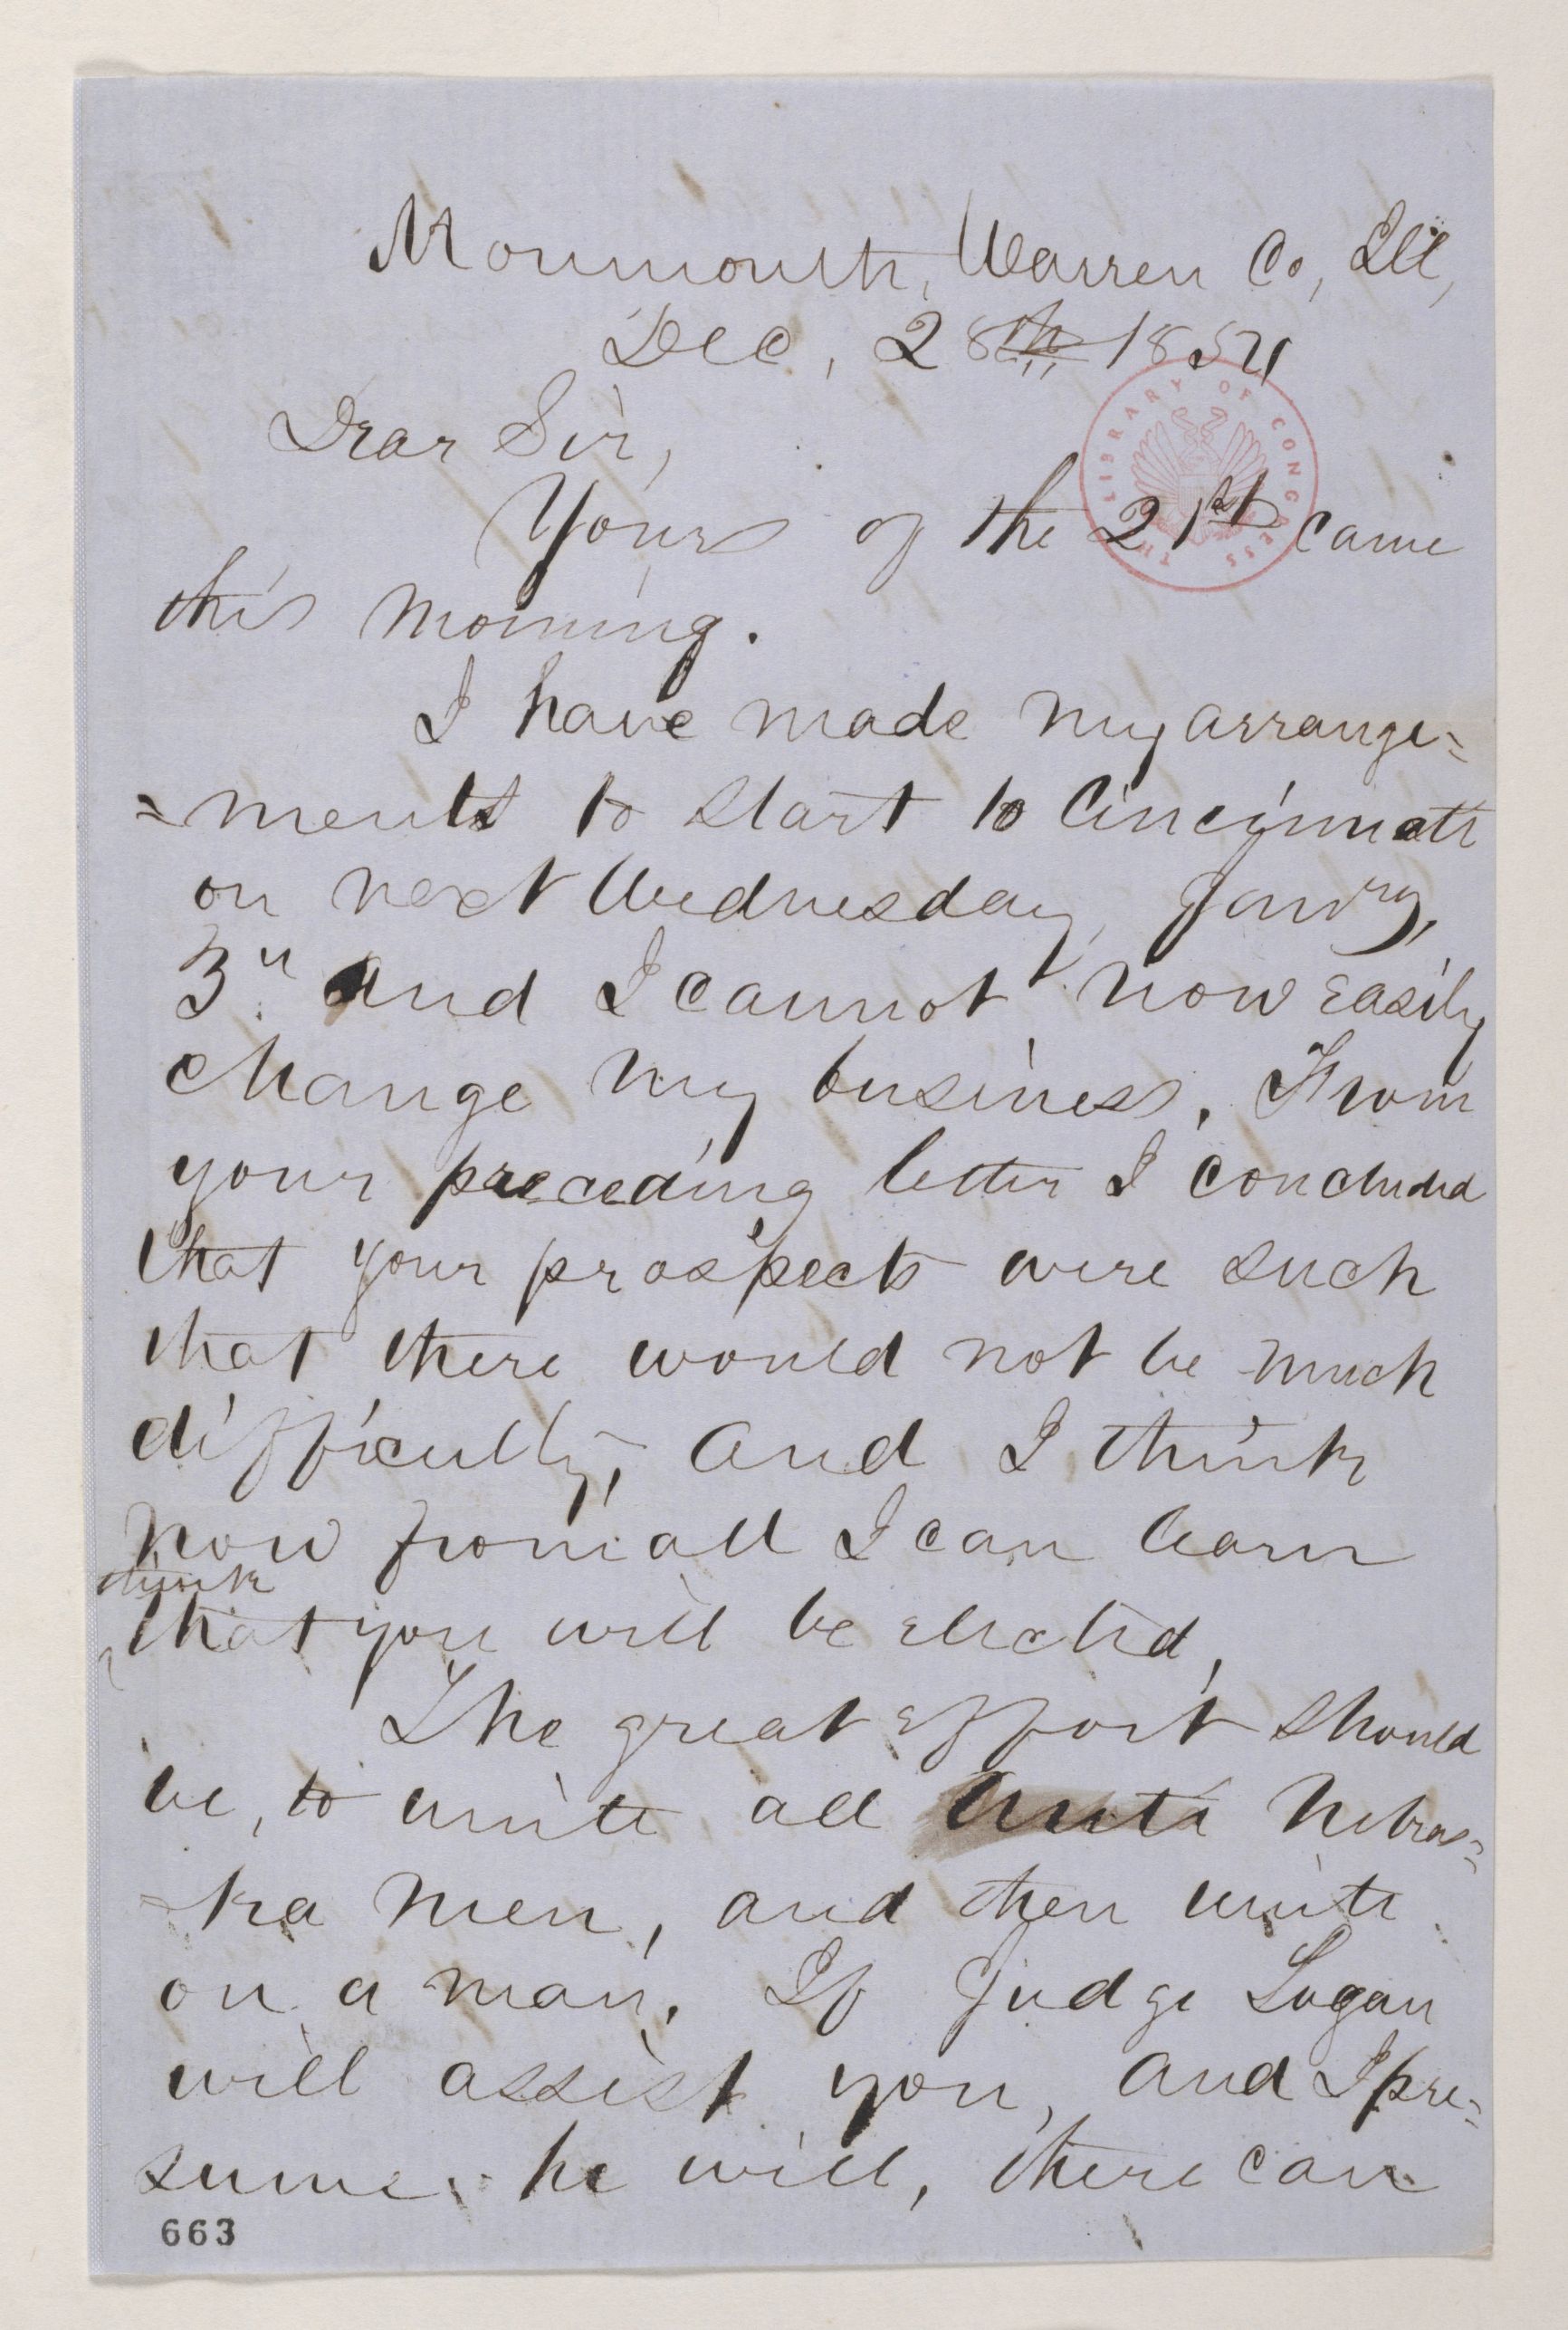 Monmouth, Warren Co, Ill,
Dec, 28th 1854
Dear Sir,
Yours of the 21st came
this morning.
I have made my arrange=
=ments to start to Cincinnati
on next Wednesday, Janry,
3d. and I cannot now easily
change my business. From
your preceding letter I concluded
that your prospects were such
that there would not be much
difficulty, and I think
now from all I can learn
think
that you will be elected,
The great effort should
be, to unite all Anti Nebras=
-ka men, and then unite
on a man. If Judge Logan
will assist you, and I pre=
sume he will, there can
663
THE LIBRARY OF CONGRESS